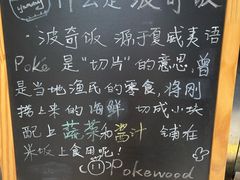 yummy
什么是波奇饭
·波奇饭 源于夏威夷语
Poké 是“切片”的意思,曾
是当地渔民的零食,将刚
捞上来的海鲜 切成小块
配上蔬菜和酱汁 铺在
米饭上食用呢!
Pokewood